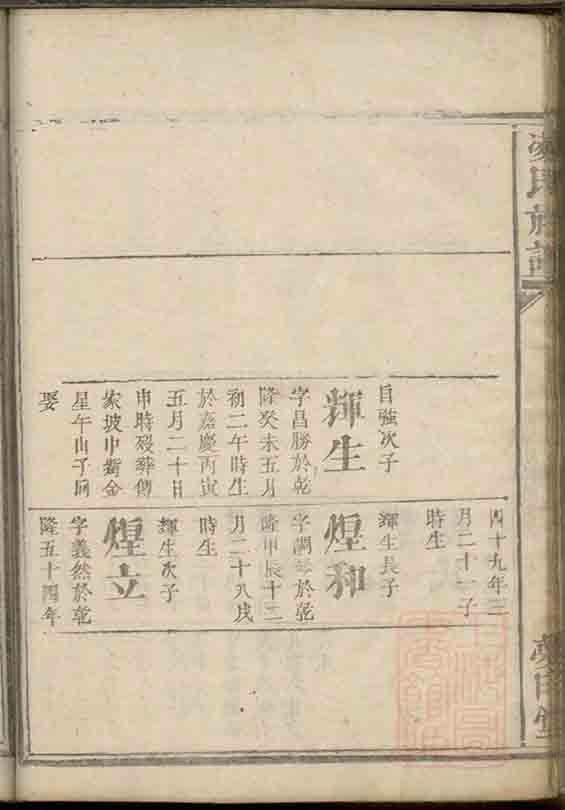 凌氏族譜
自強次子
輝生
字昌勝於乾
隆癸未五月
初二午時生
於嘉慶丙寅
五月二十日
申時歿葬傅
家坡中衝金
星午山子向
娶
四十九年三
月二十一子
時生
輝生長子
煌和
字調 於乾
隆甲辰十二
月二十八戌
時生
輝生次子
煌立
字義然於乾
隆五十四年